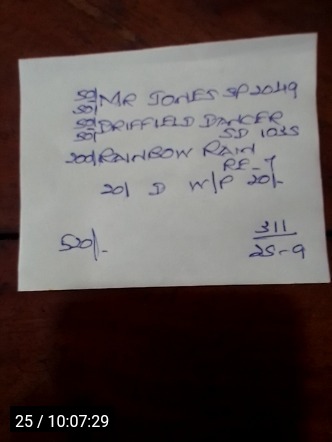 50/ MR JONES SP 2049
50/
50/ DRIFFIELD DANCER
50/ SD 1035
200/ RAINBOW RAIN
RE-7
20/ D W/P 20/-
520/-
311
25-9
25 / 10:07:29